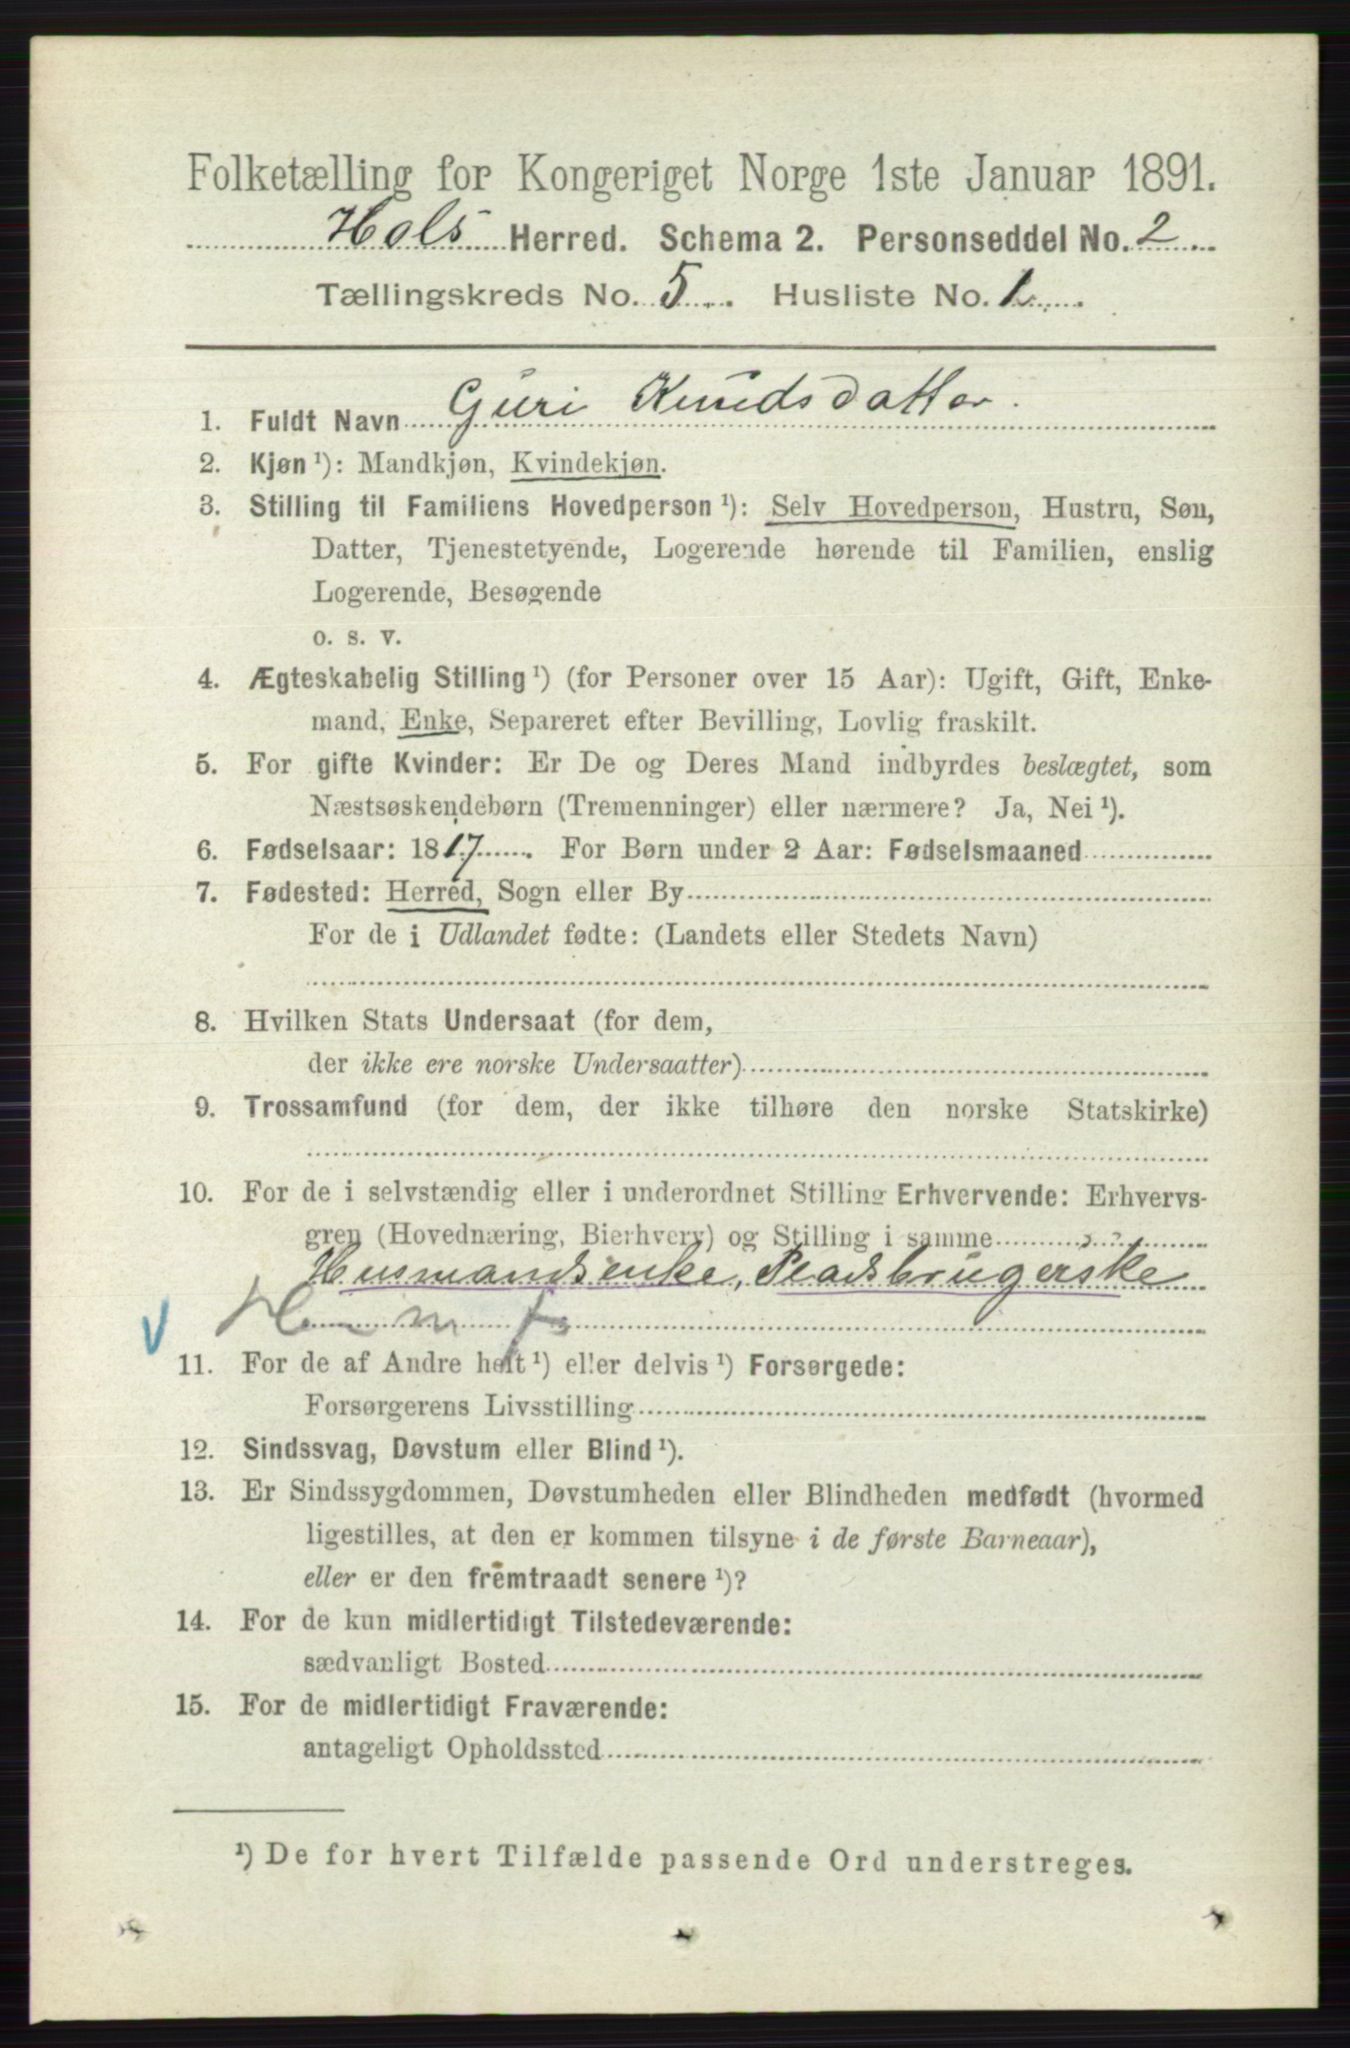 Folketælling for Kongeriget Norge 1ste Januar 1891.
Hols Herred. Schema 2. Personseddel No. 2
Tællingskreds No. 5. Husliste No. 1
1. Fuldt Navn Guri Knudsdatter.
2. Kjøn ¹): Mandkjøn, Kvindekjøn.
3. Stilling til Familiens Hovedperson ¹): Selv Hovedperson, Hustru, Søn,
Datter, Tjenestetyende, Logerende hørende til Familien, enslig
Logerende, Besøgende
o. s. v.
4. Ægteskabelig Stilling ¹) (for Personer over 15 Aar): Ugift, Gift, Enke-
mand, Enke, Separeret efter Bevilling, Lovlig fraskilt.
5. For gifte Kvinder: Er De og Deres Mand indbyrdes beslægtet, som
Næstsøskendebørn (Tremenninger) eller nærmere? Ja, Nei ¹).
6. Fødselsaar: 1817. For Børn under 2 Aar: Fødselsmaaned
7. Fødested: Herred, Sogn eller By
For de i Udlandet fødte: (Landets eller Stedets Navn)
8. Hvilken Stats Undersaat (for dem,
der ikke ere norske Undersaatter)
9. Trossamfund (for dem, der ikke tilhøre den norske Statskirke)
10. For de i selvstændig eller i underordnet Stilling Erhvervende: Erhvervs-
gren (Hovednæring, Bierhverv) og Stilling i samme
Husmandsenke, Pladsbrugerske
11. For de af Andre helt ¹) eller delvis ¹) Forsørgede:
Forsørgerens Livsstilling
12. Sindssvag, Døvstum eller Blind ¹).
13. Er Sindssygdommen, Døvstumheden eller Blindheden medfødt (hvormed
ligestilles, at den er kommen tilsyne i de første Barneaar),
eller er den fremtraadt senere ¹)?
14. For de kun midlertidigt Tilstedeværende:
sædvanligt Bosted
15. For de midlertidigt Fraværende:
antageligt Opholdssted
¹) De for hvert Tilfælde passende Ord understreges.